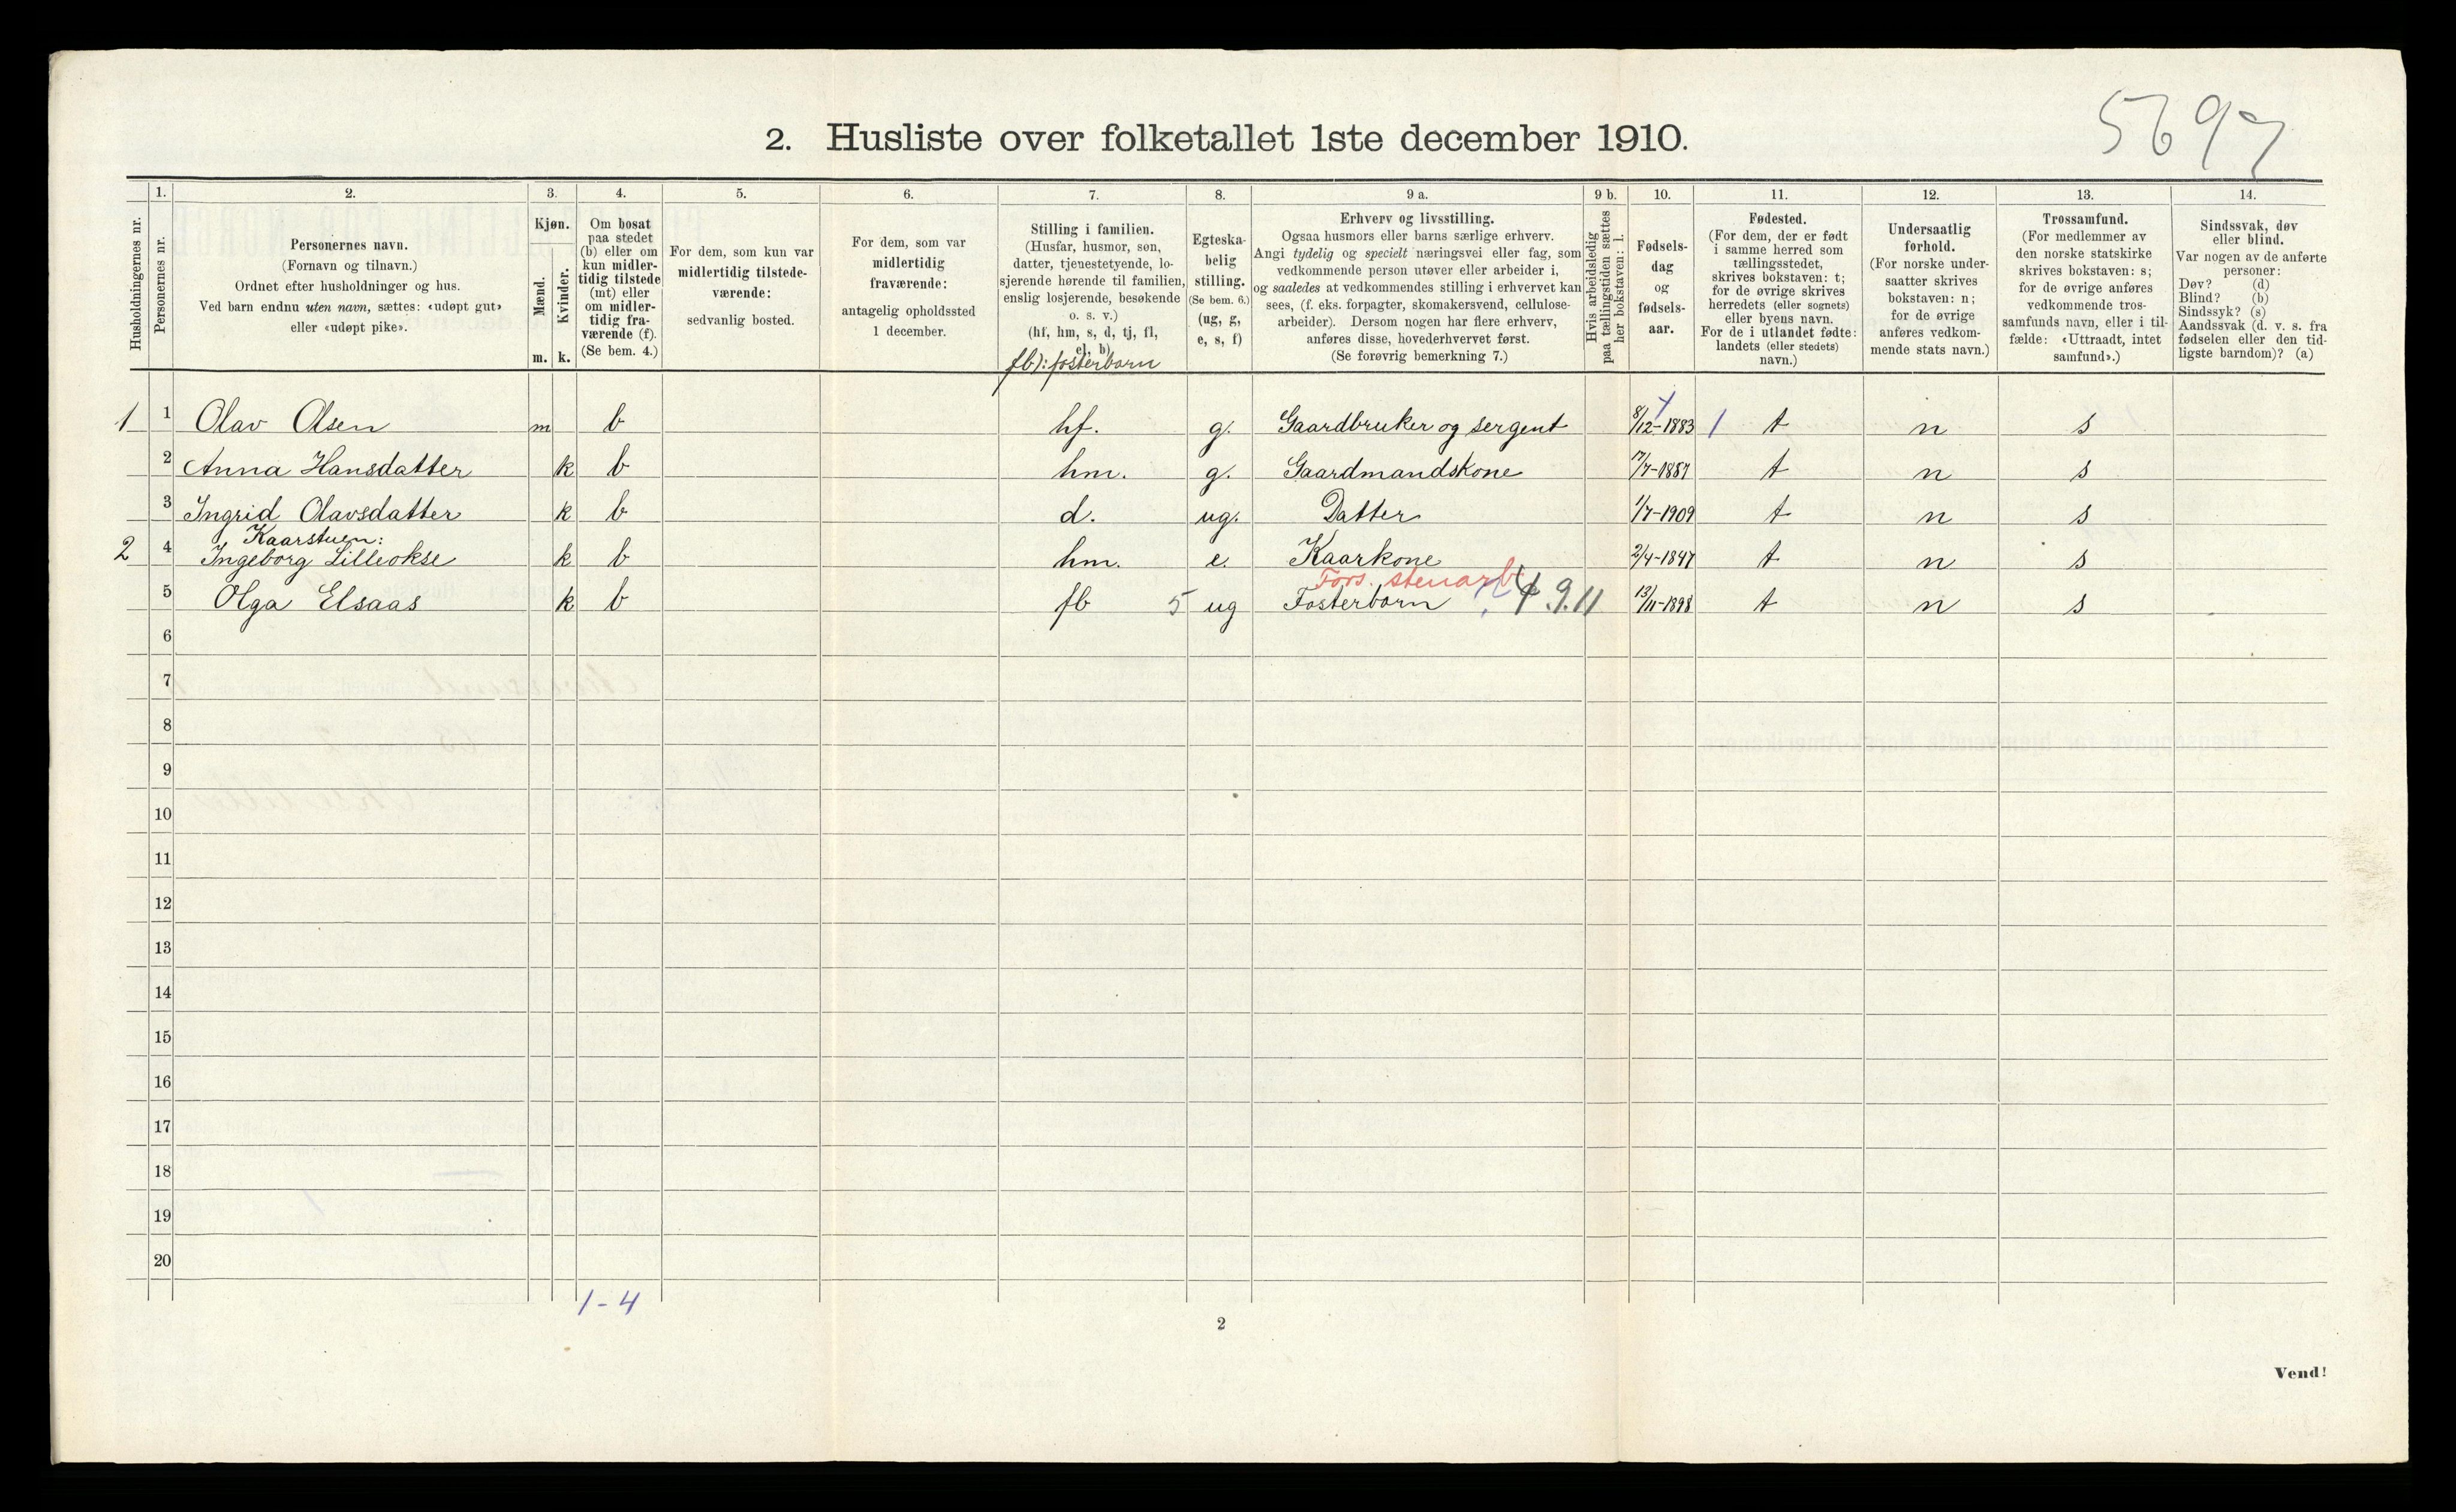 5697
2. Husliste over folketallet 1ste december 1910.
1. 2. 3. 4. 5. 6. 7. 8. 9 a. 9 b. 10. 11. 12. 13. 14.
Husholdningernes nr.
Personernes nr.
Personernes navn.
(Fornavn og tilnavn.)
Ordnet efter husholdninger og hus.
Ved barn endnu uten navn, sættes: «udøpt gut»
eller «udøpt pike».
Kjøn.
Mænd.
Kvinder.
m. k.
Om bosat
paa stedet
(b) eller om
kun midler-
tidig tilstede
(mt) eller
om midler-
tidig fra-
værende (f).
(Se bem. 4.)
For dem, som kun var
midlertidig tilstede-
værende:
sedvanlig bosted.
For dem, som var
midlertidig
fraværende:
antagelig opholdssted
1 december.
Stilling i familien.
(Husfar, husmor, søn,
datter, tjenestetyende, lo-
sjerende hørende til familien,
enslig losjerende, besøkende
o. s. v.)
(hf, hm, s, d, tj, fl,
el, b)
fb): fosterbarn
Egteska-
belig
stilling.
(Se bem. 6.)
(ug, g,
e, s, f)
Erhverv og livsstilling.
Ogsaa husmors eller barns særlige erhverv.
Angi tydelig og specielt næringsvei eller fag, som
vedkommende person utøver eller arbeider i,
og saaledes at vedkommendes stilling i erhvervet kan
sees, (f. eks. forpagter, skomakersvend, cellulose-
arbeider). Dersom nogen har flere erhverv,
anføres disse, hovederhvervet først.
(Se forøvrig bemerkning 7.)
Hvis arbeidsledig
paa tællingstiden sættes
her bokstaven: l.
Fødsels-
dag
og
fødsels-
aar.
Fødested.
(For dem, der er født
i samme herred som
tællingsstedet,
skrives bokstaven: t;
for de øvrige skrives
herredets (eller sognets)
eller byens navn.
For de i utlandet fødte:
landets (eller stedets)
navn.)
Undersaatlig
forhold.
(For norske under-
saatter skrives
bokstaven: n;
for de øvrige
anføres vedkom-
mende stats navn.)
Trossamfund.
(For medlemmer av
den norske statskirke
skrives bokstaven: s;
for de øvrige anføres
vedkommende tros-
samfunds navn, eller i til-
fælde: «Uttraadt, intet
samfund».)
Sindssvak, døv
eller blind.
Var nogen av de anførte
personer:
Døv? (d)
Blind? (b)
Sindssyk? (s)
Aandssvak (d. v. s. fra
fødselen eller den tid-
ligste barndom)? (a)
1 1 Olav Olsen m b hf. g. Gaardbruker og sergent 8/12-1883 1 t n s
2 Anna Hansdatter k b hm. g. Gaardmandskone 7/7-1887 t n s
3 Ingrid Olavsdatter k b d. ug. Datter 1/7-1909 t n s
Kaarstuen:
2 4 Ingeborg Lilleokse k b hm. e. Kaarkone 2/4-1847 t n s
Fors. stenarb
5 Olga Elsaas k b fb 5 ug Fosterbarn 4.9.11 13/11-1898 t n s
6
7
8
9
10
11
12
13
14
15
16
17
18
19
20
1-4
2
Vend!